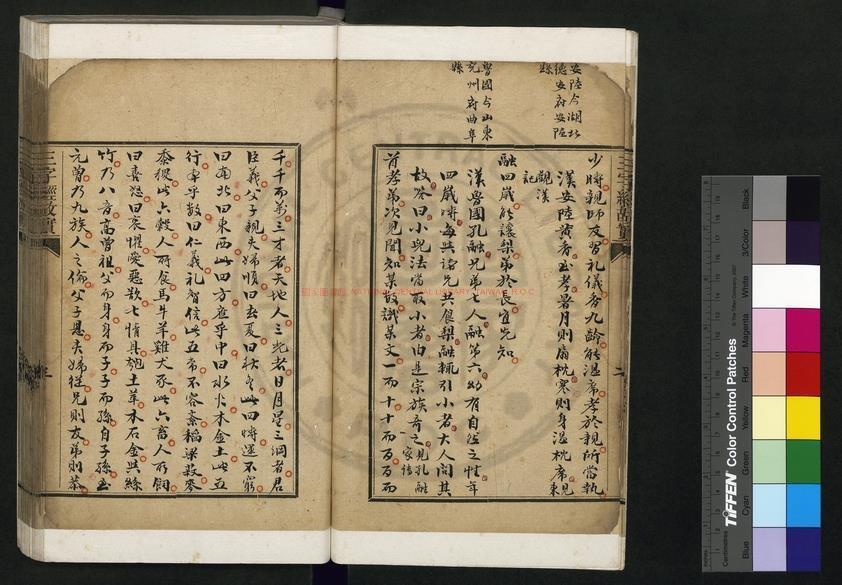 安陸今湖北
德安府安陸
縣
魯國今山東
兗州府曲阜
縣
少時親師友習礼儀香九齡能温席孝於親所當執
漢安陸黃香至孝暑月則扇枕寒則身温枕席見東
觀漢
記
融四歲能讓梨弟於長宜先知
漢魯國孔融兄弟七人融第六幼有自然之性年
四歲時每與諸兄共食梨融輒引小者大人問其
故答曰小兒法當取小者由是宗族奇之見孔融
家傳
首孝弟次見聞知某数識某文一而十十而百百而
千千而萬三才者天地人三光者日月星三綱者君
臣義父子親夫婦順曰春夏曰秋冬此四時運不窮
曰南北曰東西此四方應乎中曰水火木金土此五
行本乎数曰仁義礼智信此五常不容紊稲粱菽麥
黍稷此六穀人所食馬牛羊雞犬豕此六畜人所飼
曰喜怒曰哀懼愛惡欲七情具匏土革木石金與絲
竹乃八音高曾祖父而身身而子子而孫自子孫至
元曾乃九族人之倫父子恩夫婦從兄則友弟則恭
三字經故實
二
三字經故實
三
國家圖書館 NATIONAL CENTRAL LIBRARY, TAIWAN, R.O.C
TIFFEN Color Control Patches
© The Tiffen Company, 2007
Centimetres
Blue
Cyan
Green
Yellow
Red
Magenta
White
3/Color
Black